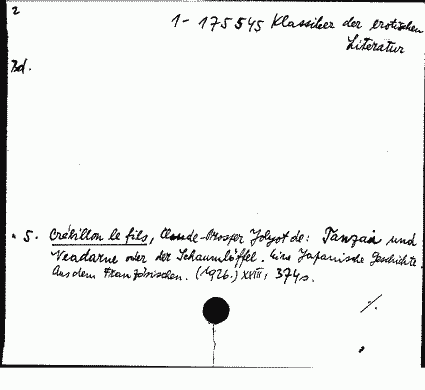 2
1- 175545 Klassiker der erotischen
Literatur
Bd.
5. Crébillon le fils, Claude-Prosper Jolyot de: Tanzai und
Neadarne oder der Schaumlöffel. Eine Japanische Geschichte.
Aus dem Französischen. (1926.) XXIII, 374 s.